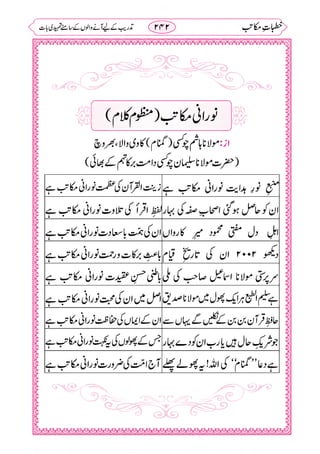 خطباتِ مکاتب ۲۴۲ تدریب کے لیے آنے والوں کے سامنے تمہیدی بات
نورانی مکاتب (منظوم کلام)
از: مولانا ہاشم یسی (گمنام) کاوی والا، بھروچ
(حضرت مولانا سلیمان یسی دامت برکاتہم کے بھائی)
منبعِ نورِ ہدایت نورانی مکاتب ہے تنزیلِ القرآن کی عظمت نورانی مکاتب ہے
ان کو حاصل ہوگئی اصحابِ صفہ کی بہار لفظِ اقرأ کی تلاوت نورانی مکاتب ہے
اہلِ دل مفتی محمود میرِ کارواں ان کی تمہی باسعادت نورانی مکاتب ہے
دیکھو ۲۰۰۳ ان کی تاریخِ قیام باعثِ برکات ورحمت نورانی مکاتب ہے
سرپرستی مولانا اسماعیل صاحب کی ملی باطنی حسنِ عقیدت نورانی مکاتب ہے
ہے سلیم الطبع اِک ہر پھول میں مولانا صدیق اصل میں ان کی محبت نورانی مکاتب ہے
حافظِ قرآن بن بن کے نکلیں گے یہاں سے ان کے ایماں کی حفاظت نورانی مکاتب ہے
جو شریکِ حال ہیں یارب ان کو دے بہار جس کے پھولوں کی نکہت نورانی مکاتب ہے
ہے دعا "گمنام" کی اللہ! یہ پھولے پھلے آج امت کی ضرورت نورانی مکاتب ہے